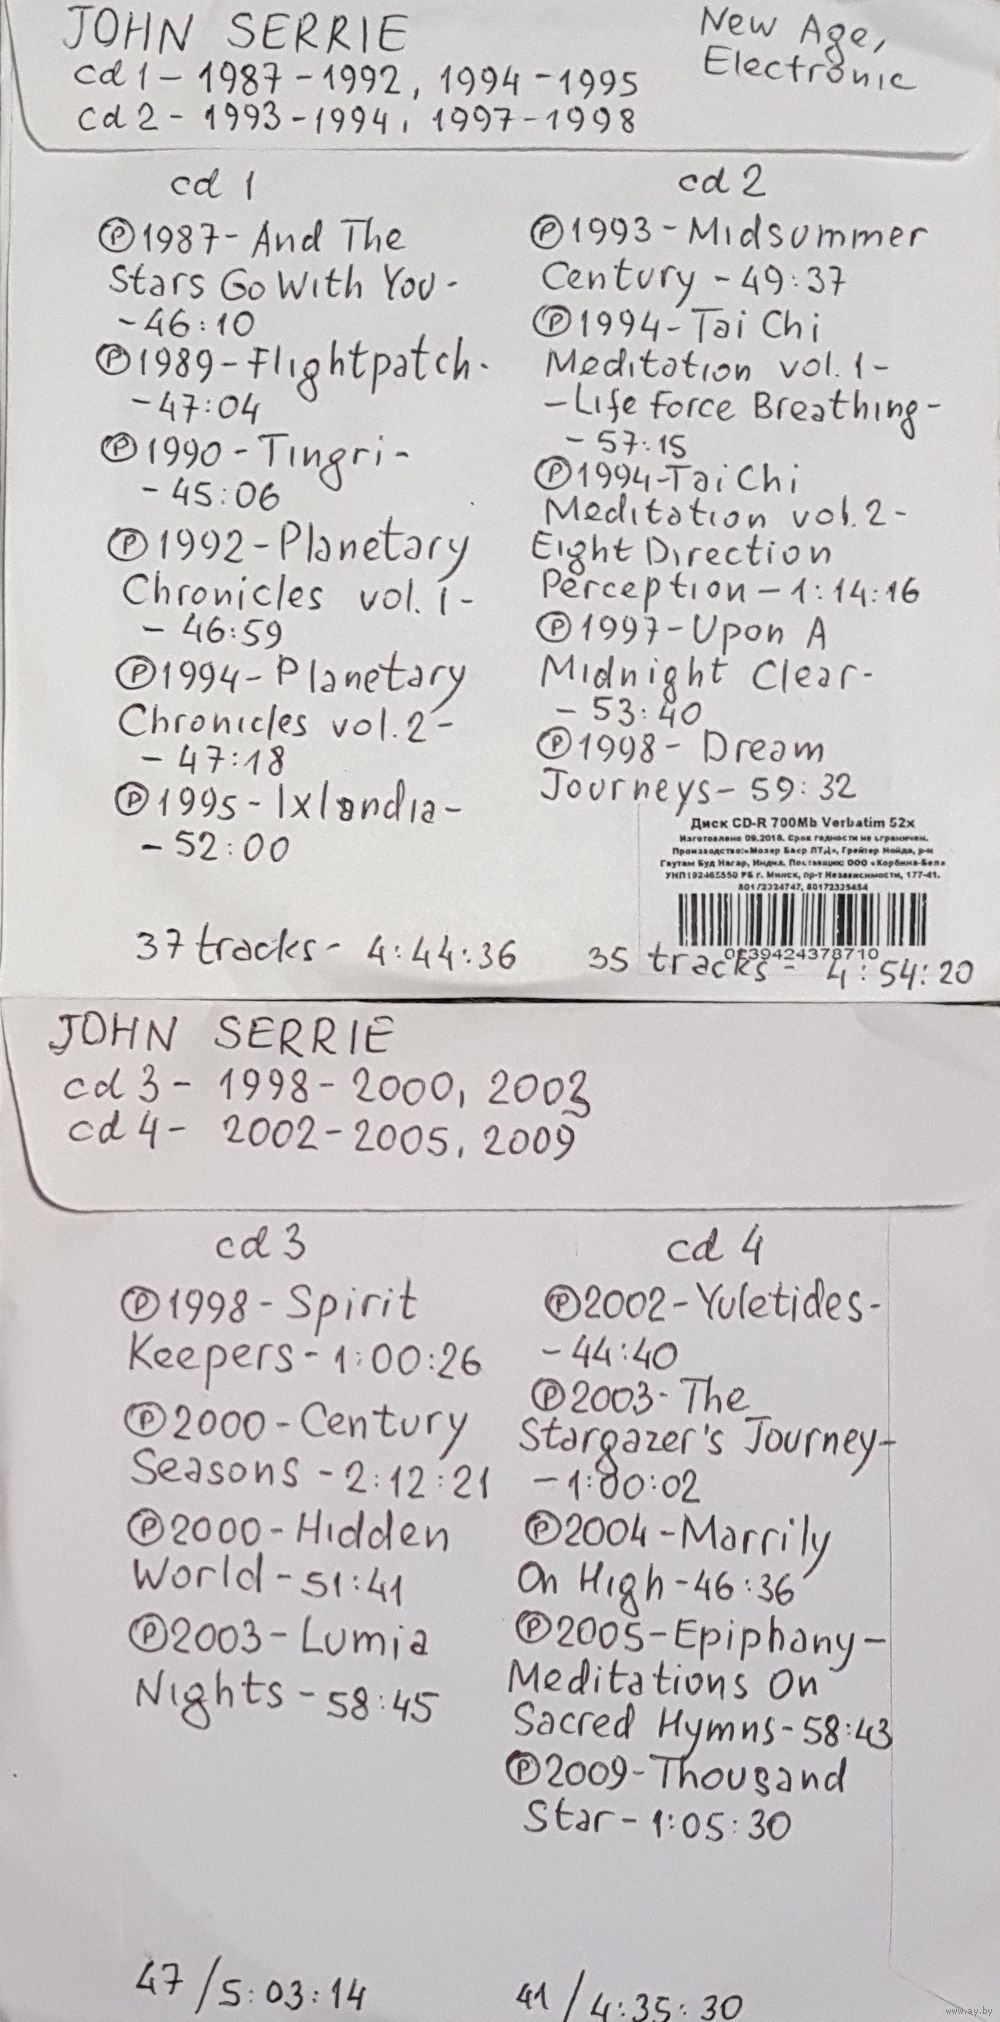 JOHN SERRIE
New Age,
Electronic
cd 1 - 1987 - 1992, 1994 - 1995
cd 2 - 1993 - 1994, 1997 - 1998
cd 1
Ⓟ1987 - And The
Stars Go With You -
- 46:10
Ⓟ1989 - Flightpatch -
- 47:04
Ⓟ1990 - Tingri -
- 45:06
Ⓟ1992 - Planetary
Chronicles vol. 1 -
- 46:59
Ⓟ1994 - Planetary
Chronicles vol. 2 -
- 47:18
Ⓟ1995 - Ixlandia -
- 52:00
37 tracks - 4:44:36
cd 2
Ⓟ1993 - Midsummer
Century - 49:37
Ⓟ1994 - Tai Chi
Meditation vol. 1 -
- Life Force Breathing -
- 57:15
Ⓟ1994 - Tai Chi
Meditation vol. 2 -
Eight Direction
Perception - 1:14:16
Ⓟ1997 - Upon A
Midnight Clear -
- 53:40
Ⓟ1998 - Dream
Journeys - 59:32
Диск CD-R 700Mb Verbatim 52x
Изготовлено 09.2018. Срок годности не ограничен.
Производство:«Мозер Баер ЛТД», Грейтер Нойда, р-н
Гаутам Буд Нагар, Индия. Поставщик: ООО «Корбина-Бел»
УНП192465550 РБ г. Минск, пр-т Независимости, 177-41.
80172324747, 80172325454
0239424378710
35 tracks - 4:54:20
JOHN SERRIE
cd 3 - 1998 - 2000, 2003
cd 4 - 2002 - 2005, 2009
cd 3
Ⓟ1998 - Spirit
Keepers - 1:00:26
Ⓟ2000 - Century
Seasons - 2:12:21
Ⓟ2000 - Hidden
World - 51:41
Ⓟ2003 - Lumia
Nights - 58:45
47 / 5:03:14
cd 4
Ⓟ2002 - Yuletides -
- 44:40
Ⓟ2003 - The
Stargazer's Journey -
- 1:00:02
Ⓟ2004 - Marrily
On High - 46:36
Ⓟ2005 - Epiphany -
Meditations On
Sacred Hymns - 58:43
Ⓟ2009 - Thousand
Star - 1:05:30
41 / 4:35:30
www.ay.by